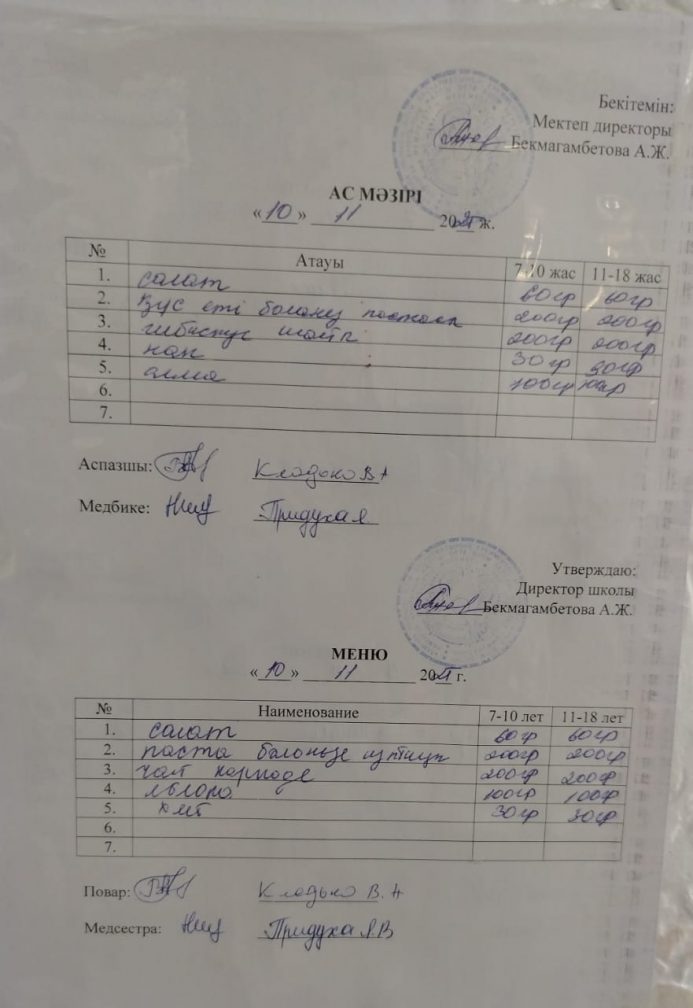 Бекітемін:
Мектеп директоры
Бекмагамбетова А.Ж.
АС МӘЗІРІ
«10» 11 20 ж.
№ Атауы 7-10 жас 11-18 жас
1. салат 60гр 60гр
2. Құс еті болонез пастасы 200гр 200гр
3. гибискус шайы 200гр 200гр
4. нан 30гр 30гр
5. алма 100гр 100гр
6.
7.
Аспазшы: Кладько В А
Медбике: Придуха Я
Утверждаю:
Директор школы
Бекмагамбетова А.Ж.
МЕНЮ
«10» 11 20 г.
№ Наименование 7-10 лет 11-18 лет
1. салат 60гр 60гр
2. паста болоньзе 200гр 200гр
3. чай каркаде 200гр 200гр
4. яблоко 100гр 100гр
5. 30гр 30гр
6.
7.
Повар: Кладько В. А
Медсестра: Придуха Я В